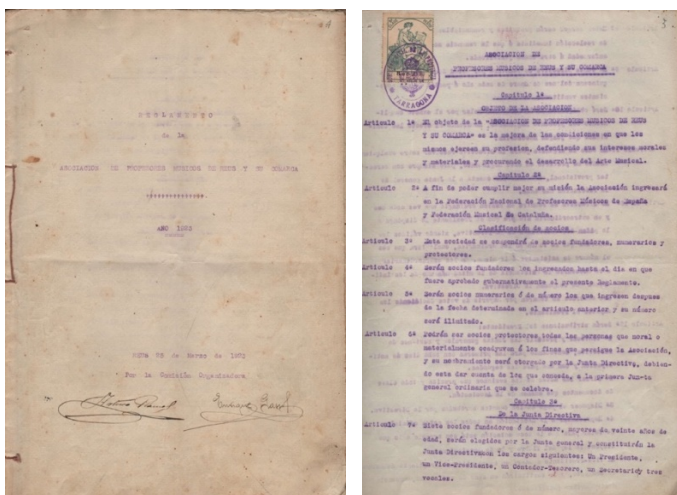 REGLAMENTO
de la
ASOCIACION DE PROFESORES MUSICOS DE REUS Y SU COMARCA
AÑO 1923
REUS de Marzo de 1923
Por la Comisión Organizadora.
3
TARRAGONA
ASOCIACION DE
PROFESORES MUSICOS DE REUS Y SU COMARCA
Capítulo 1º
OBJETO DE LA ASOCIACION
Artículo 1º El objeto de la "ASOCIACION DE PROFESORES MUSICOS DE REUS
Y SU COMARCA" es la mejora de las condiciones en que los
mismos ejercen su profesion, defendiendo sus intereses morales
y materiales y procurando el desarrollo del Arte Musical.
Capítulo 2º
Artículo 2º A fin de poder cumplir mejor su misión la Asociación ingresará
en la Federación Nacional de Profesores Músicos de España
y Federación Musical de Cataluña.
Clasificación de socios
Artículo 3º Esta sociedad se compondrá de socios fundadores, numerarios y
protectores.
Artículo 4º Serán socios fundadores los ingresados hasta el día en que
fuere aprobado gubernativamente el presente Reglamento.
Artículo 5º Serán socios numerarios ó de número los que ingresen despues
de la fecha determinada en el artículo anterior y su número
será ilimitado.
Artículo 6º Podrán ser socios protectores todas las personas que moral o
materialmente coadyuven á los fines que persigue la Asociación,
y su nombramiento será otorgado por la Junta Directiva, debien-
do esta dar cuenta de los que conceda, a la primera Junta
general ordinaria que se celebre.
Capítulo 3º
De la Junta Directiva
Artículo 7º Siete socios fundadores ó de número, mayores de veinte años de
edad, serán elegidos por la Junta general y constituirán la
Junta Directiva con los cargos siguientes: Un Presidente,
un Vice-Presidente, un Contador-Tesorero, un Secretario y tres
vocales.